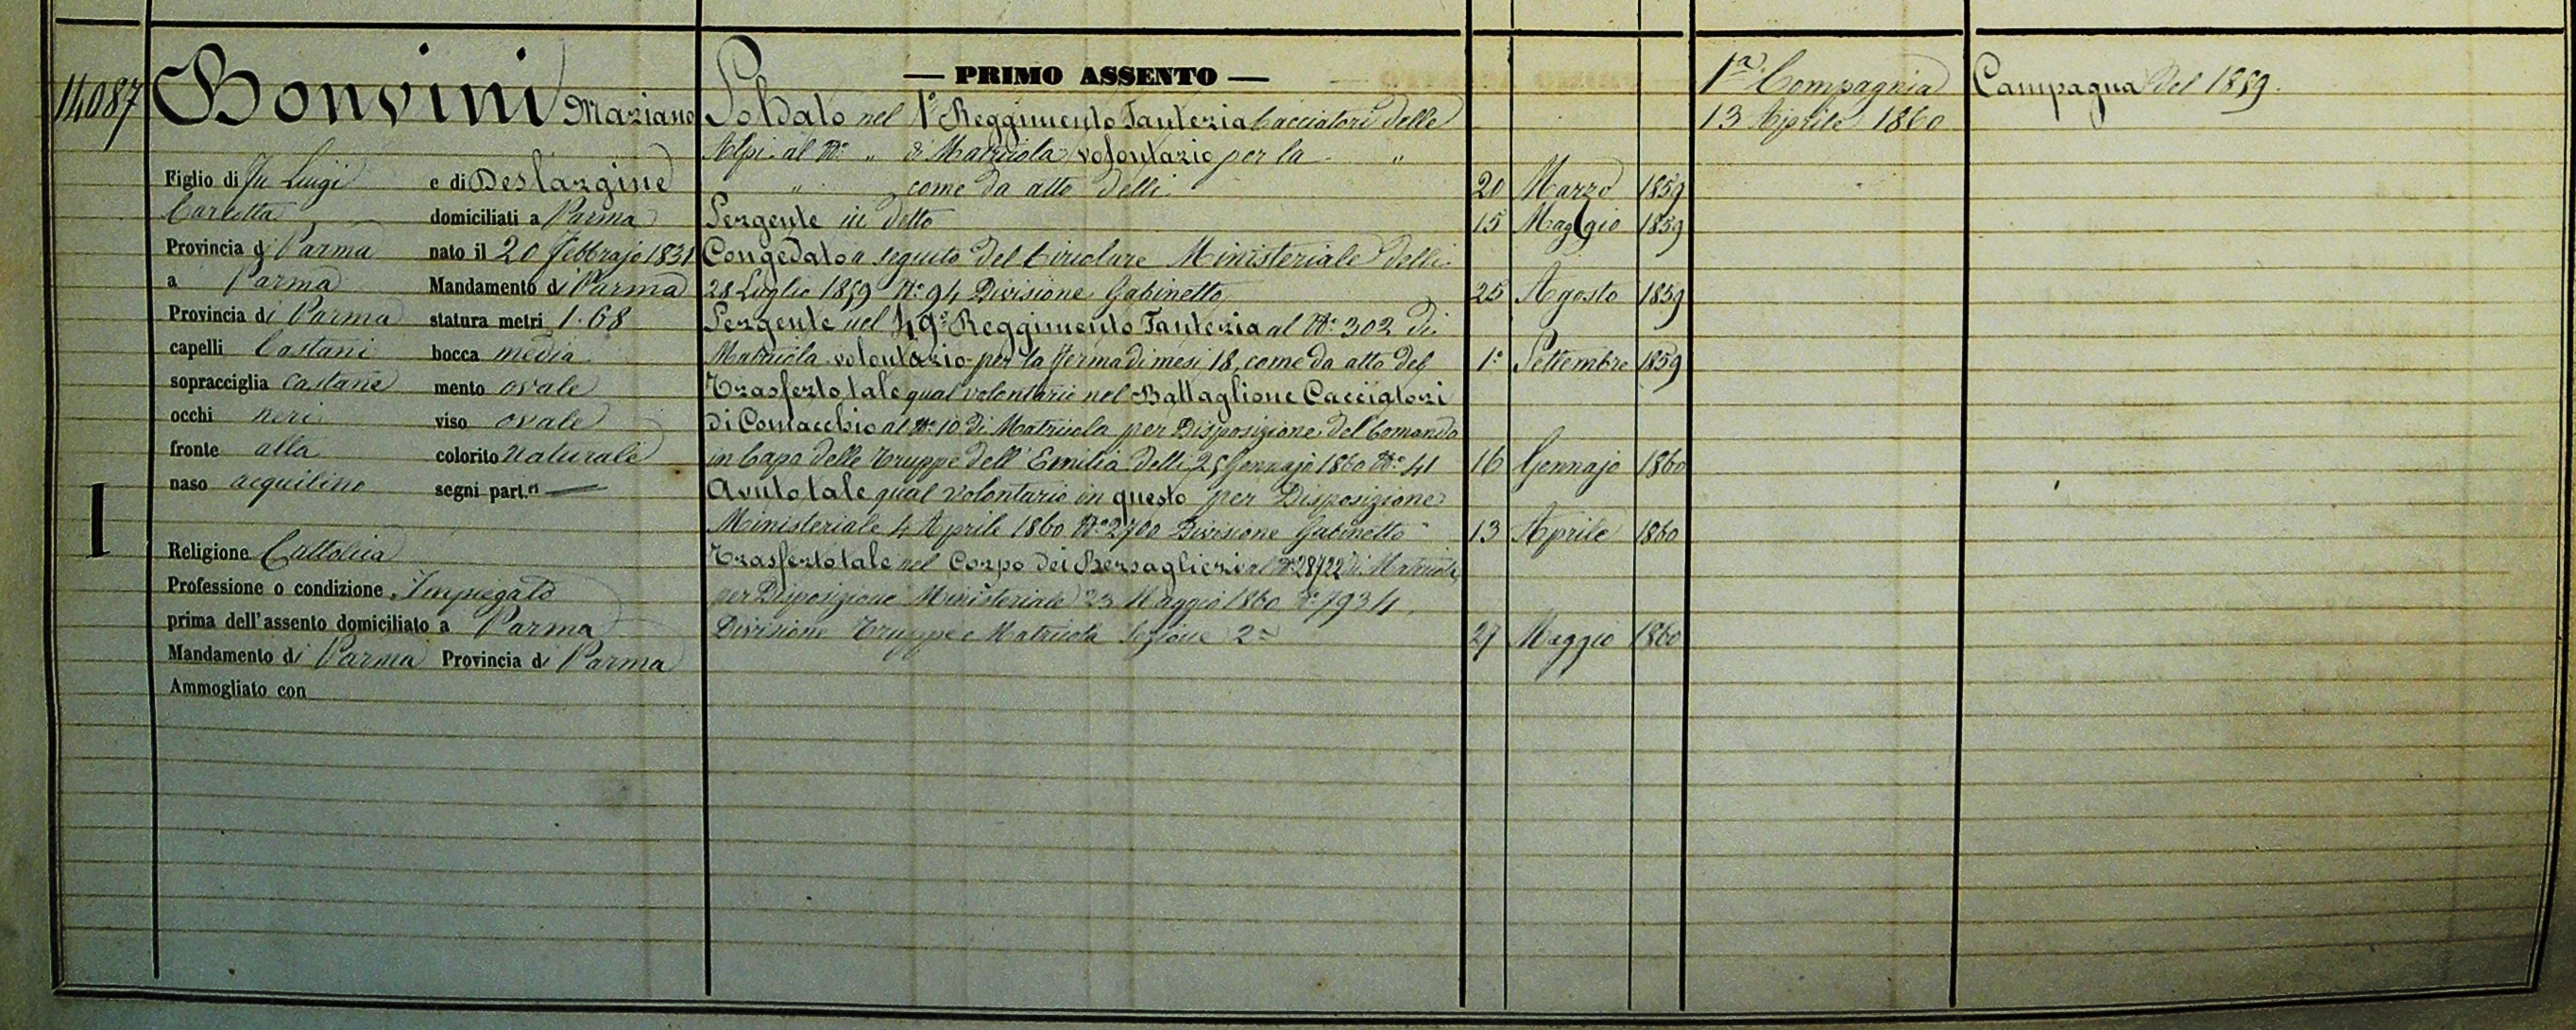 14087
Bonvini Mariano
Figlio di fu Luigi e di Deslargine
Carlotta domiciliati a Parma
Provincia di Parma nato il 20 Febbrajo 1831
a Parma Mandamento di Parma
Provincia di Parma statura metri 1.68
capelli Castani bocca media
sopracciglia castane mento ovale
occhi neri viso ovale
fronte alta colorito naturale
naso acquilino segni part.ri —
1
Religione Cattolica
Professione o condizione Impiegato
prima dell'assento domiciliato a Parma
Mandamento di Parma Provincia di Parma
Ammogliato con
— PRIMO ASSENTO —
Soldato nel 1° Reggimento Fanteria Cacciatori delle
Alpi al N° " di Matricola volontario per la "
" come da atto delli 20 Marzo 1859
Sergente in detto 15 Maggio 1859
Congedato a seguito del Circolare Ministeriale delli
28 Luglio 1859 N° 94 Divisione Gabinetto 25 Agosto 1859
Sergente nel 49° Reggimento Fanteria al N° 302 di
Matricola volontario per la ferma di mesi 18, come da atto del 1° Settembre 1859
Trasferto tale qual volontario nel Battaglione Cacciatori
di Comacchio al N° 10 di Matricola per Disposizione del Comando
in Capo delle Truppe dell'Emilia delli 25 Gennajo 1860 N° 41 16 Gennajo 1860
Avuto tale qual volontario in questo per Disposizione
Ministeriale 4 Aprile 1860 N° 2700 Divisione Gabinetto 13 Aprile 1860
Trasferto tale nel Corpo dei Bersaglieri al N° 28922 di Matricola
per Disposizione Ministeriale 23 Maggio 1860 N° 7934
Divisione Truppe e Matricola Sezione 2a 27 Maggio 1860
1a Compagnia
13 Aprile 1860
Campagna del 1859.